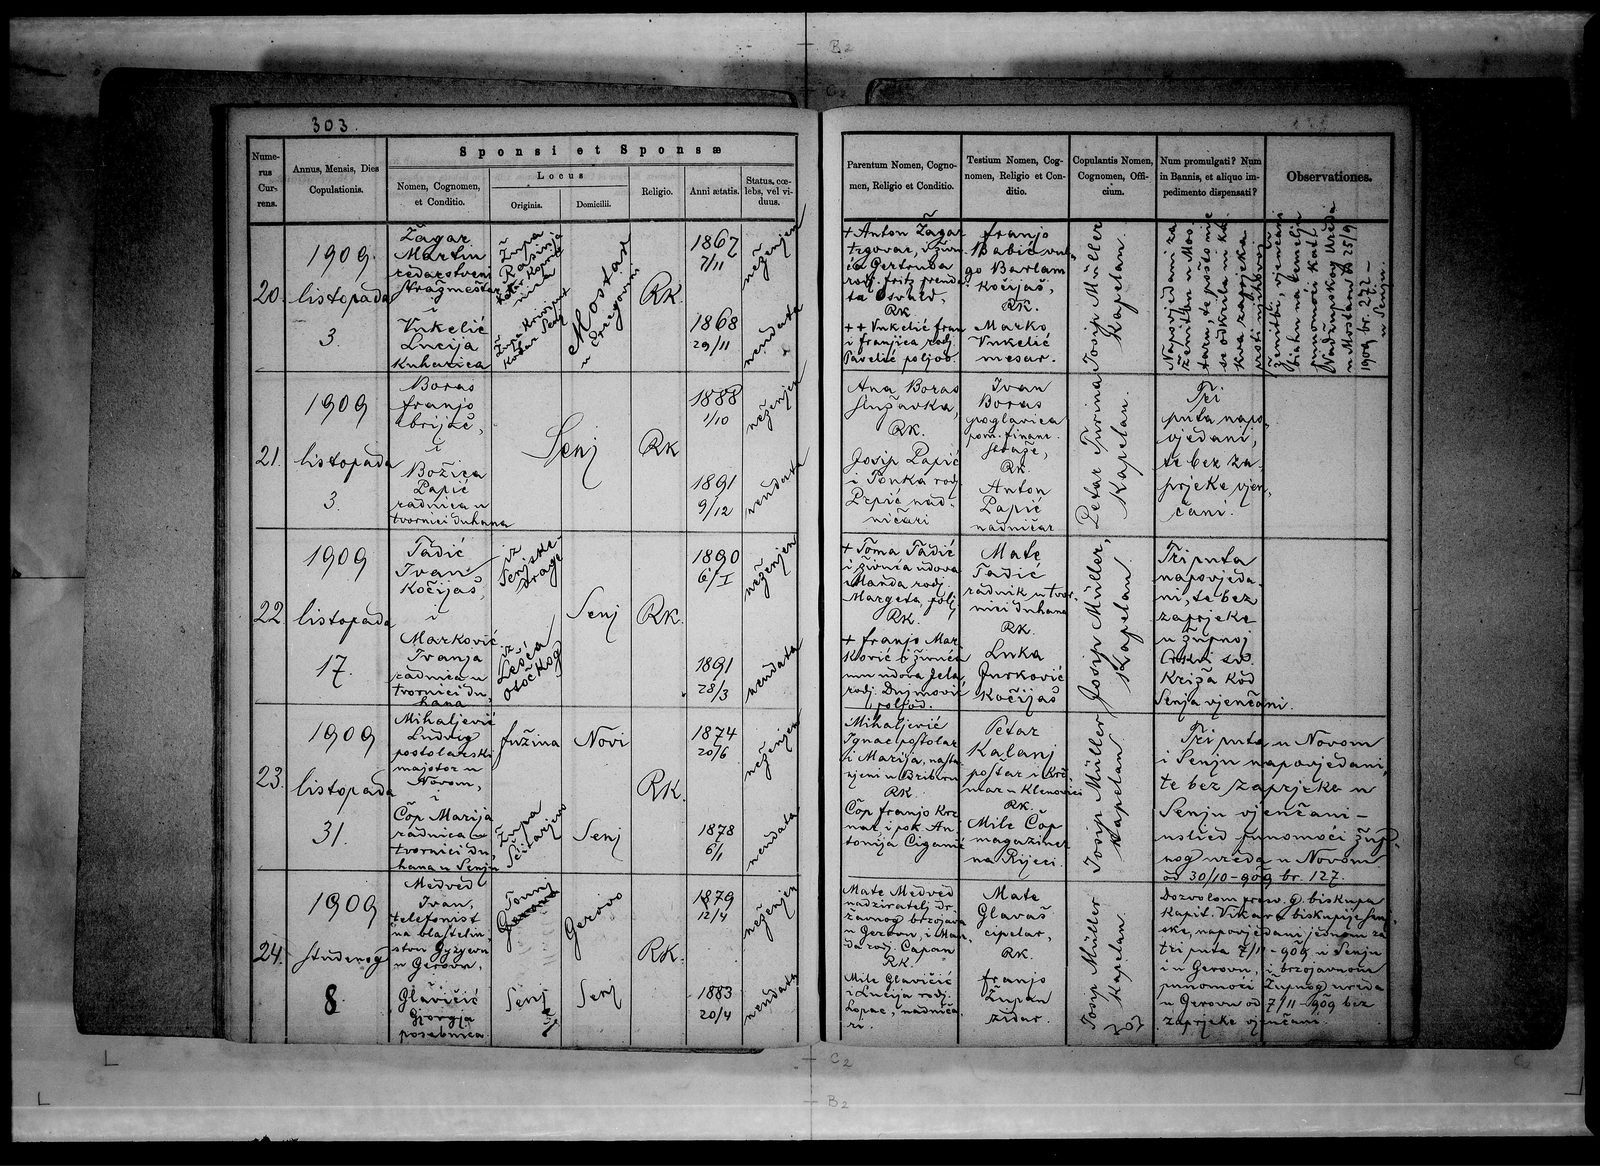 B2
C2
303.
Nume-
rus
Cur-
rens.
Annus, Mensis, Dies
Copulationis.
Sponsi et Sponsæ
Nomen, Cognomen,
et Conditio.
Locus
Originis.
Domicilii.
Religio.
Anni ætatis.
Status, cœ-
lebs, vel vi-
duus.
Parentum Nomen, Cogno-
men, Religio et Conditio.
Testium Nomen, Cog-
nomen, Religio et Con-
ditio.
Copulantis Nomen,
Cognomen, Offi-
cium.
Num promulgati? Num
in Bannis, et aliquo im-
pedimento dispensati?
Observationes.
20.
1909
listopada
3.
Žagar
Martin
redarstveni
Stražmeštar
i
Vukelić
Lucija
Kuharica
Župa
Rasinja
Kotar Kopriv-
nica
Župa Krivi put
Kotar Senj
Mostar
u Ercegovini
RK.
1867
7/11
1868
29/11
neženjen
neudata
+ Anton Žagar
trgovac, i živu-
ća Gertruda
rodj.
RK
+ + Vukelić Fran
i Franjica rodj.
Pavelić poljod.
Franjo
Babić vul-
go Barlam
Kočijaš,
RK.
Marko
Vukelić
mesar.
Josip Müller
Kapelan.
Napovjedani za
ženitbu u Mos
taru, te pošto nije
se odkrila ni ka
kva zaprjeka
proti njihovoj
ženitbi, vjenčani
su na temelju
punomoći kat.
Nadžupskog Ureda
u Mostaru od 25/9
1909 br. 272 –
u Senju.
21.
1909
listopada
3.
Boras
Franjo
brijač,
i
Božica
Papić
radnica u
tvornici duhana
Senj
RK
1888
1/10
1891
9/12
neženjen
neudata
Ana Boras
služavka,
RK.
Josip Papić
i Tonka rodj
Prpić nad-
ničari
Ivan
Boras
poglavica
pom. financ.
straže,
RK
Anton
Papić
nadničar
Petar Turina
Kapelan.
Tri
puta napo-
vjedani,
te bez za-
prjeke vjen-
čani.
22
1909
listopada
17.
Tadić
Ivan
Kočijaš,
i
Marković
Ivanja
radnica u
tvornici du-
hana
iz
Senjske
Drage
iz
Lešća
otočkog
Senj
RK.
1890
6/I
1891
28/3
neženjen
neudata
+ Toma Tadić
i živuća udova
Manda rodj.
Margeta, polj
RK.
+ Franjo Mar
ković i živuća
mu udova Jela,
rodj. Dujmović
poljod.
Mate
Tadić
radnik u tvor-
nici duhana
RK.
Luka
Jurković
Kočijaš
Josip Müller,
Kapelan.
Tri puta
napovjeda-
ni, te bez
zaprjeke
u župnoj
Crkvi sv.
Križa kod
Senja vjenčani.
23.
1909
listopada
31.
Mihaljević
Ludvig
postolarski
majstor u
Novom,
i
Čop Marija
radnica u
tvornici du-
hana u Senju
Fužina
Župa
Šćitarjevo
Novi
Senj
RK.
1874
20/6
1878
6/1
neženjen
neudata
Mihaljević
Ignac postolar
i Marija, nasta
njeni u Bribiru
RK.
Čop Franjo Krz
nar i pok. An
tonija Ciganić
Petar
Kalanj
poštar i Krč-
mar u Klenovici
RK.
Mile Čop
magaziner
na Rijeci.
Josip Müller
Kapelan
Tri puta u Novom
i Senju napovjedani,
te bez zaprjeke u
Senju vjenčani –
uslied punomoći žup-
nog ureda u Novom
od 30/10-909 br. 127.
24.
1909
studenog
8.
Medved
Ivan,
telefonist
na vlastelin-
stvu
u Gerovu,
i
Glavičić
Gjorgja
posebnica.
Senj
Gerovo
Senj
RK.
1879
12/4
1883
20/4
neženjen
neudata
Mate Medved
nadziratelj dr
žavnog brzojava
u Gerovu, i Man
da rodj. Capan
RK.
Mile Glavičić
i Lucija rodj.
Lopac, nadniča
ri.
Mate
Glavaš
cipelar,
RK.
Franjo
Župan
zidar.
Josip Müller
Kapelan
Dozvolom presv. g. biskupa
Kapit. Vikara biskupije Senj-
ske, napovjedani jednom za
tri puta 7/11-909 u Senju
i u Gerovu, i brzojavnom
punomoći Župnog ureda
u Gerovu od 7/11-909 bez
zaprjeke vjenčani.
C2
B2